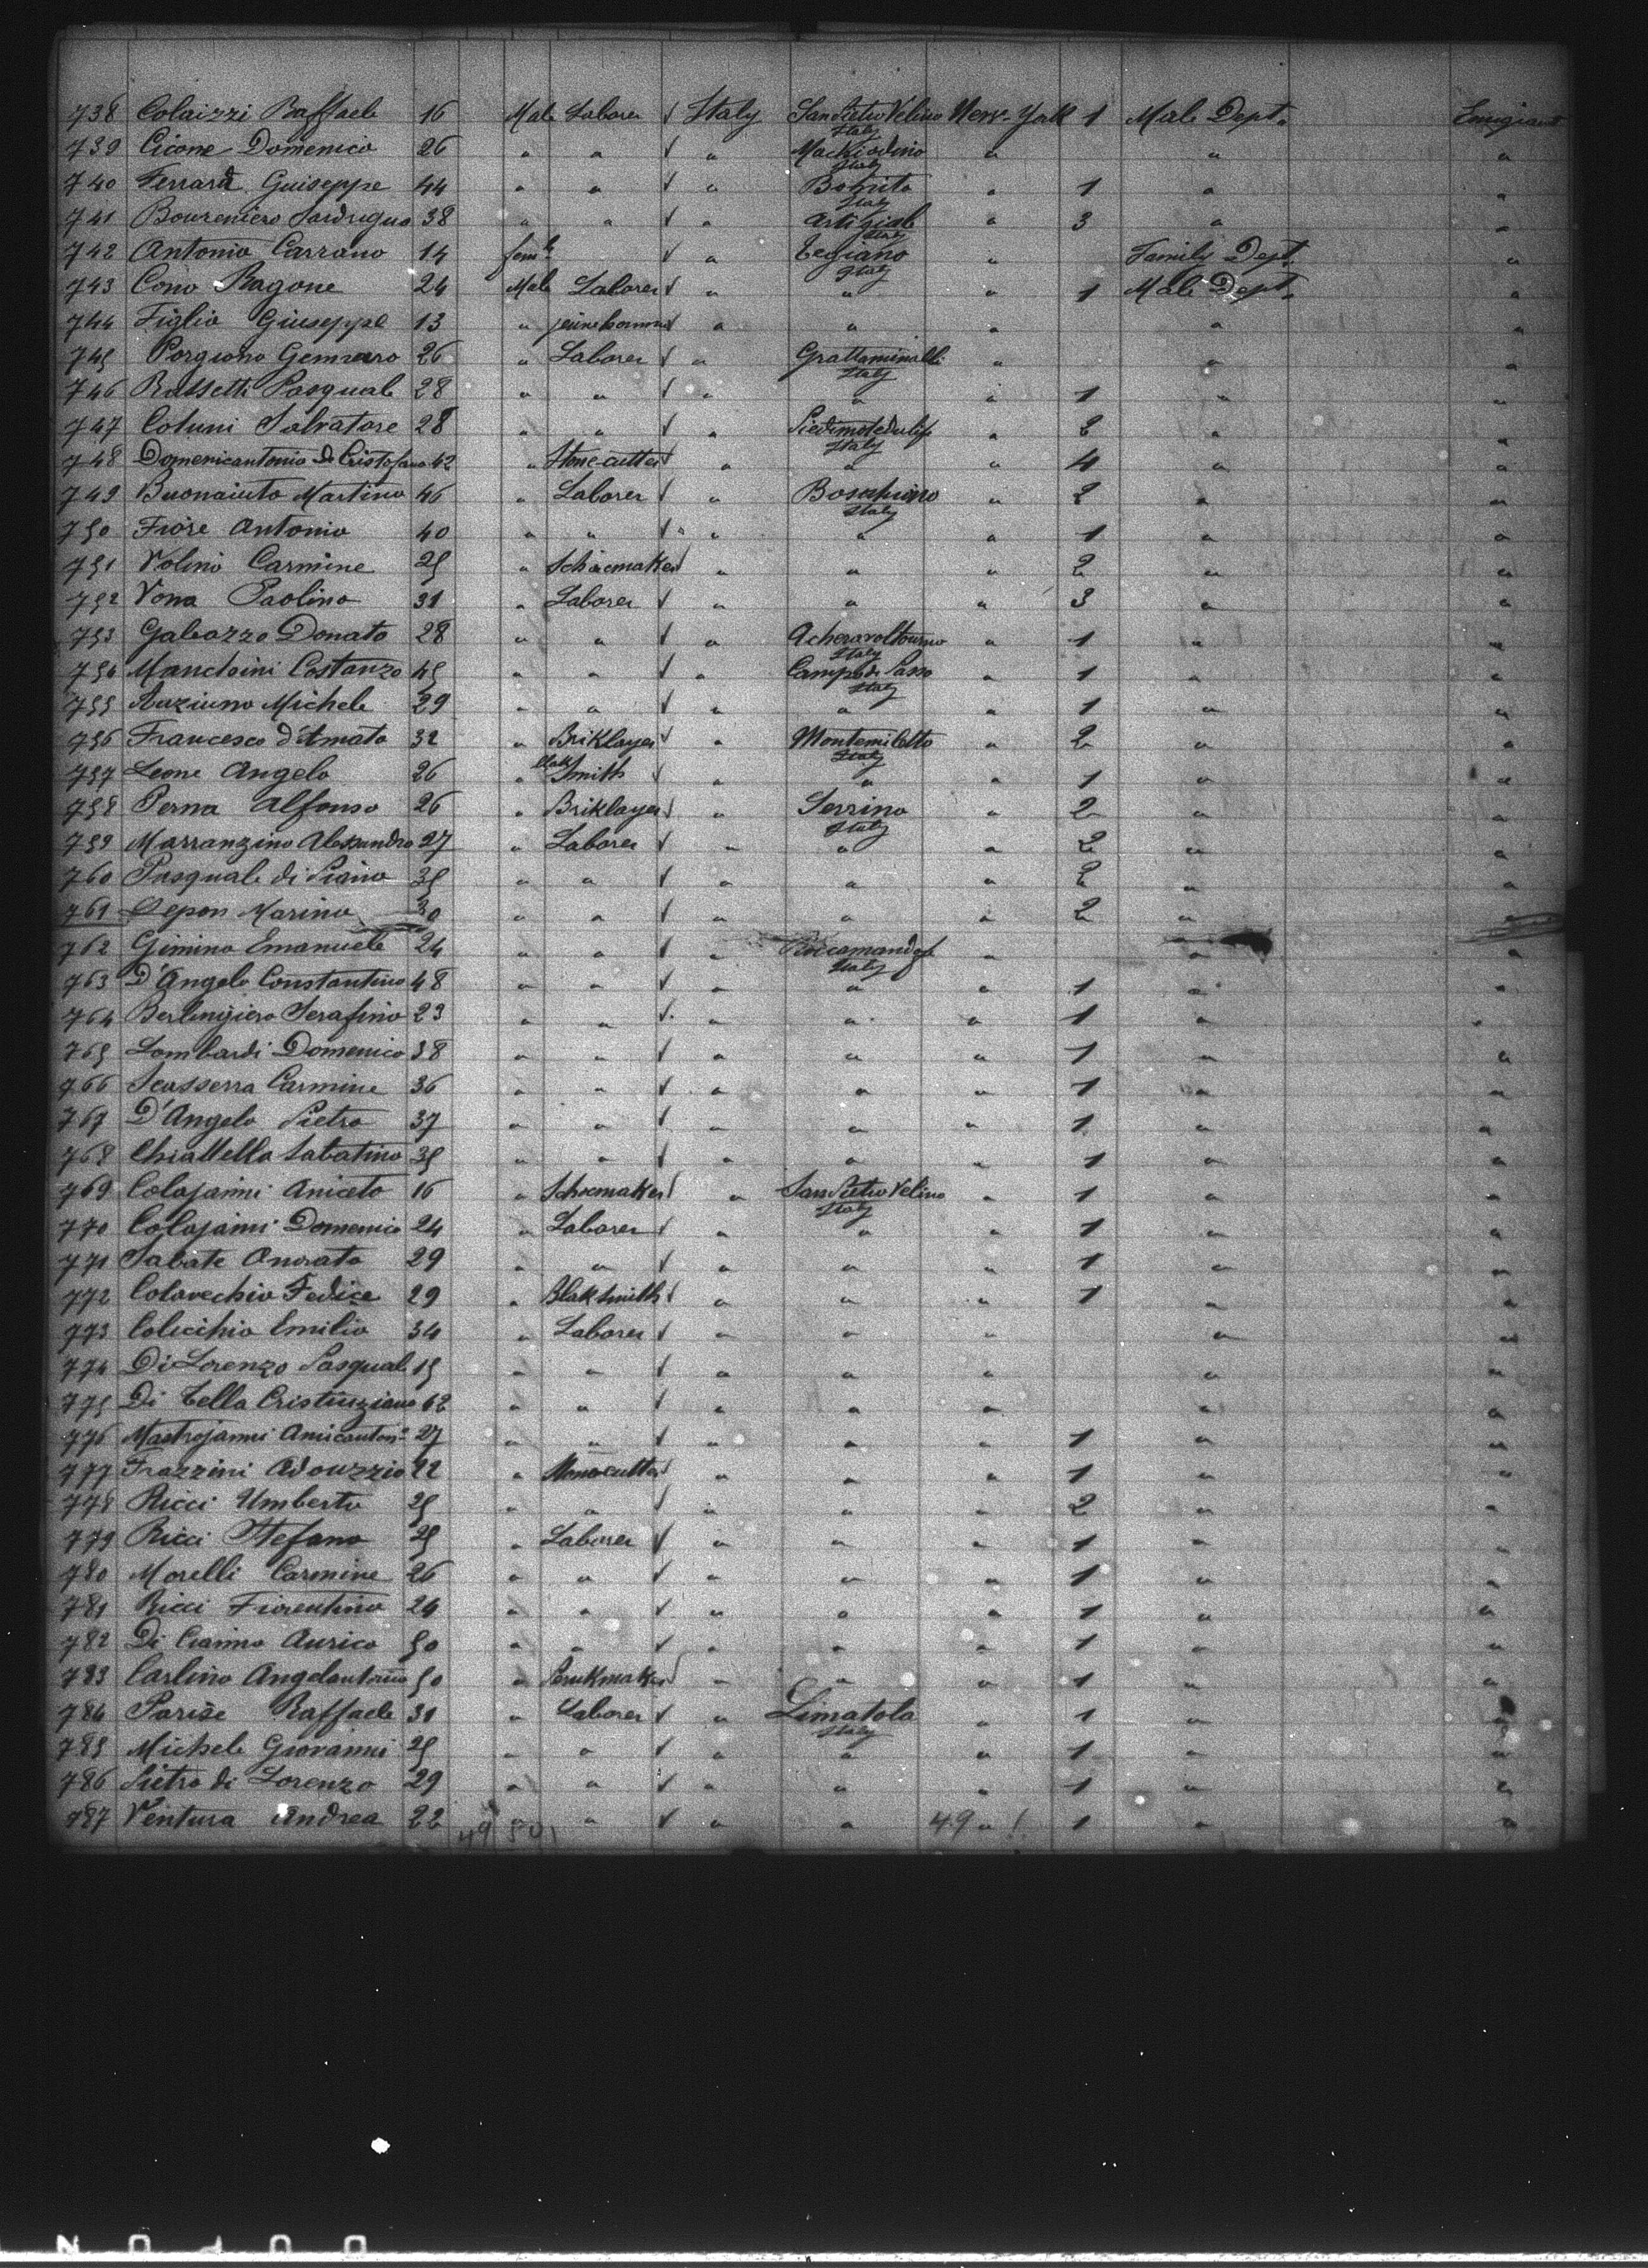 738 Colaizzi Raffaele 16 Male Laborer √ Italy San Pietro Velino New-York 1 Male Dept. Emigrant
Italy
739 Cicone Domenico 26 " " √ " " " "
Italy
740 Ferrara Guiseppe 44 " " √ " Bonito " 1 " "
Italy
741 38 " " √ " " 3 " "
Italy
742 Antonio Carrano 14 fem.le √ " Tegiano " Family Dept. "
Italy
743 Cono Ragone 24 Male Laborer √ " " " 1 Male Dept. "
744 Figlio Giuseppe 13 " jeune homme √ " " " " "
745 Porgiono Gennaro 26 " Laborer √ " Grattaminalli " " "
Italy
746 Rossetti Pasquale 28 " " √ " " " 1 " "
747 Coluni Salvatore 28 " " √ " " 2 " "
Italy
748 Domenicantonio di Cristofano 42 " Stone-cutter √ " " " 4 " "
749 Buonaiuto Martino 46 " Laborer √ " " 2 " "
Italy
750 Fiore Antonio 40 " " √ " " " 1 " "
751 Volino Carmine 25 " Schoemaker √ " " " 2 " "
752 Vona Paolino 31 " Laborer √ " " " 3 " "
753 Galeazzo Donato 28 " " √ " " 1 " "
Italy
754 Manchini Costanzo 45 " " √ " Campo di Sasso " 1 " "
Italy
755 Michele 29 " " √ " " " 1 " "
756 Francesco d'Amato 32 " Briklayer √ " Montemiletto " 2 " "
Italy
757 Leone Angelo 26 " Blak Smith √ " " " 1 " "
758 Perna Alfonso 26 " Briklayer √ " Serrino " 2 " "
Italy
759 Marranzino Alessandro 27 " Laborer √ " " " 2 " "
760 Pasquale di Piano 35 " " √ " " " 2 " "
761 Depon Marino 30 " " √ " " " 2 "
762 Gimino Emanuele 24 " " √ " Roccamandolf " " "
Italy
763 D'Angelo Constantino 48 " " √ " " " 1 " "
764 Berlingiero Serafino 23 " " √ " " " 1 " "
765 Lombardi Domenico 38 " " √ " " " 1 " "
766 Scasserra Carmine 36 " " √ " " " 1 " "
767 D'Angelo Pietro 37 " " √ " " " 1 " "
768 Chiallella Sabatino 35 " " √ " " " 1 " "
769 Colajanni Aniceto 16 " Schoemaker √ " San Pietro Velino " 1 " "
Italy
770 Colajanni Domenico 24 " Laborer √ " " " 1 " "
771 Sabate Onorato 29 " " √ " " " 1 " "
772 Colavechio Fedice 29 " Blaksmith √ " " " 1 " "
773 Colicchio Emilio 34 " Laborer √ " " " " "
774 Di Lorenzo Pasquale 15 " " √ " " " " "
775 Di Tella Cristinziano 62 " " √ " " " " "
776 Mastrojanni Amicanton.o 27 " " √ " " " 1 " "
777 Frazzini Adouzzio 22 " Stonecutter √ " " " 1 " "
778 Ricci Umberto 25 " " √ " " " 2 " "
779 Ricci Stefano 25 " Laborer √ " " " 1 " "
780 Morelli Carmine 26 " " √ " " " 1 " "
781 Ricci Fiorentino 24 " " √ " " " 1 " "
782 Di Cianno Aurico 50 " " √ " " " 1 " "
783 Carlino Angelantonio 50 " Perukmaker √ " " " 1 " "
784 Parise Raffaele 31 " Laborer √ " Limatola " 1 " "
Italy
785 Michele Giovanni 25 " " √ " " " 1 " "
786 Pietro di Lorenzo 29 " " √ " " " 1 " "
787 Ventura Andrea 22 49 50 " √ " " 49 " 1 " "